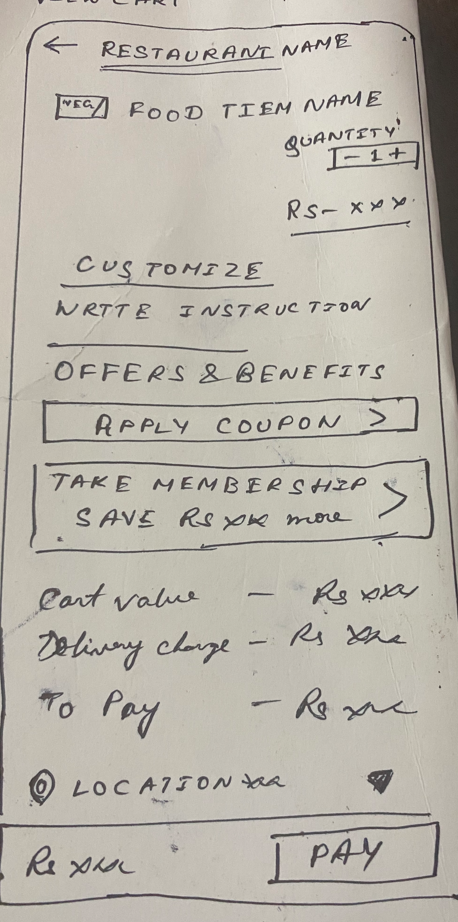 VIEW CART
← RESTAURANT NAME
VEG FOOD TIEM NAME
QUANTITY
- 1 +
RS- xxx
CUSTOMIZE
WRITE INSTRUCTION
OFFERS & BENEFITS
APPLY COUPON >
TAKE MEMBERSHIP >
SAVE Rs xxx more
Cart value - Rs xxx
Delivery charge - Rs xxx
To Pay - Rs xxx
LOCATION xxx
Rs xxx PAY